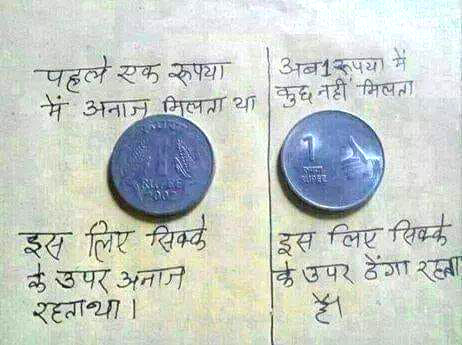 पहले एक रूपया
में अनाज मिलता था
1
RUPEE
इस लिए सिक्के
के उपर अनाज
रहता था।
अब 1 रूपया में
कुछ नहीं मिलता
1
रुपया
RUPEE
इस लिए सिक्के
के उपर ठेंगा रहता
है।